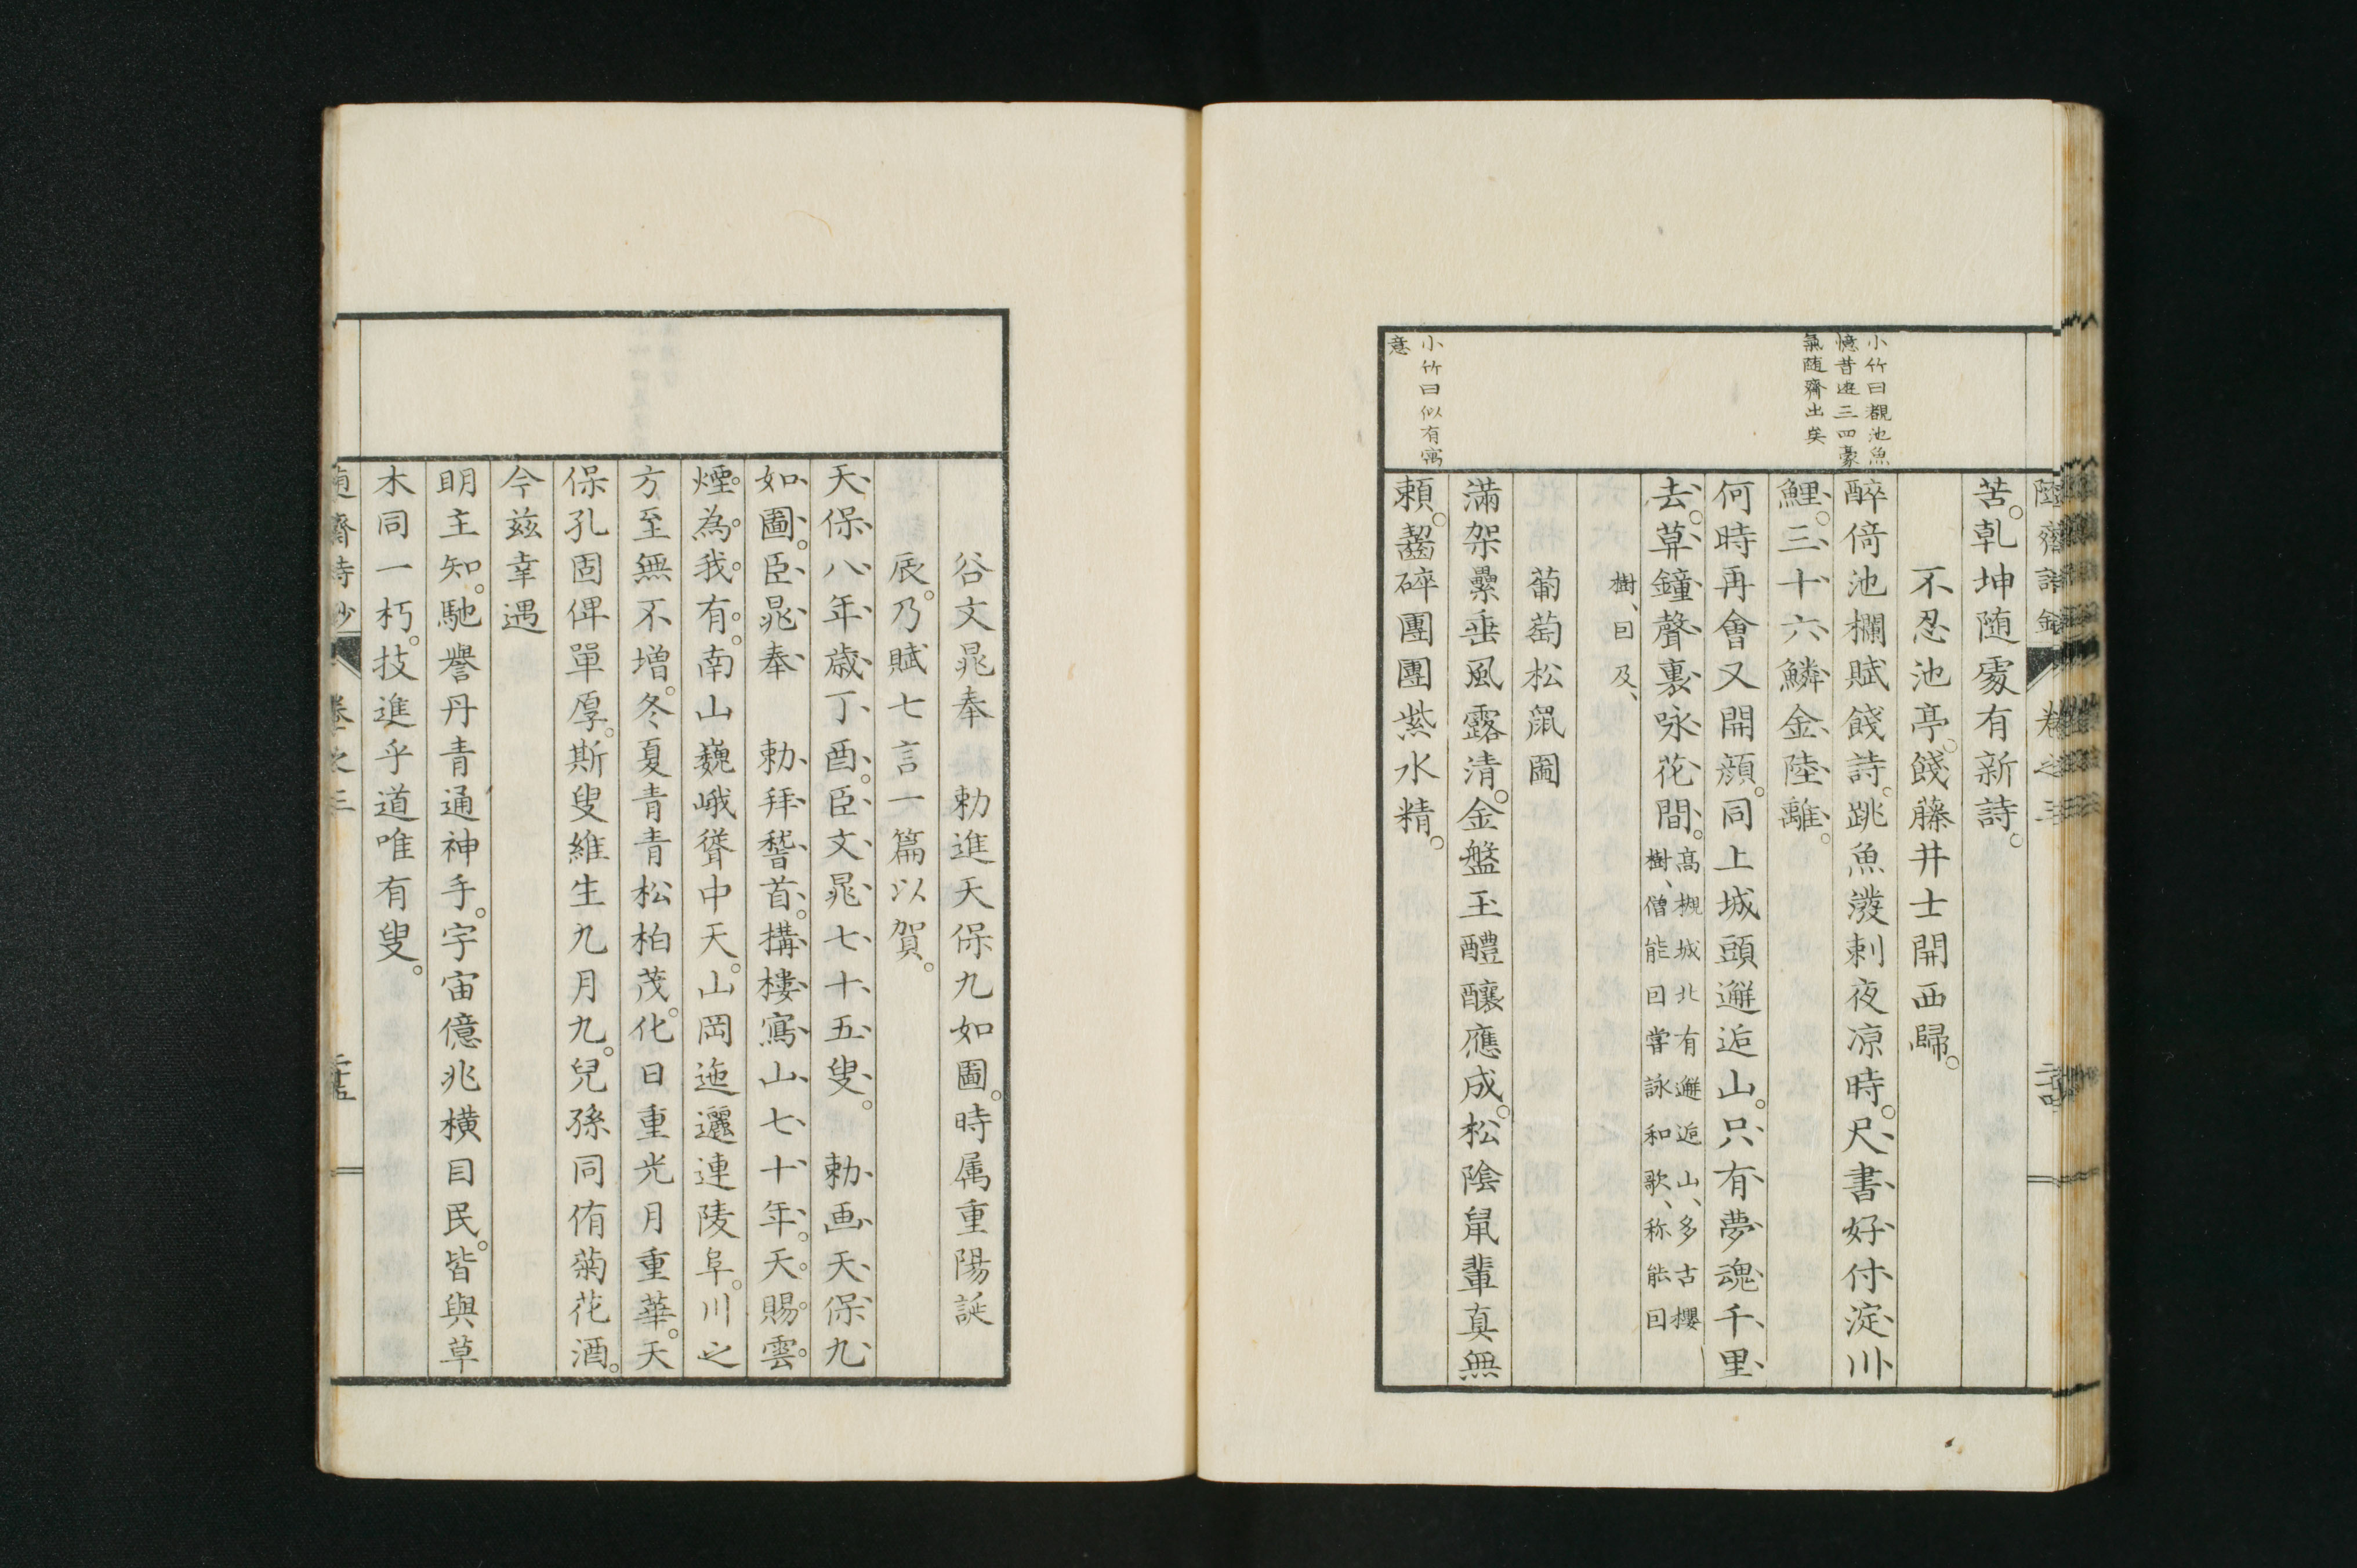 小竹曰觀池魚
憶昔遊三四豪
氣随齋出矣
小竹曰似有寓
意
苦。乹坤随處有新詩。
不忍池亭。餞藤井士開西歸。
醉倚池欄賦餞詩。跳魚潑剌夜凉時。尺、書、好、付、淀、川、
鯉、。三、十、六、鱗、金、陸、離、。
何時再會又開顔。同上城頭邂逅山。只、有、夢、魂、千、里、
去、。草、鐘、聲、裏、咏、花、間、。高槻城北有邂逅山、多古櫻
樹、僧能因嘗詠和歌、称能因
樹、曰及、
葡萄松鼠圖
滿架纍垂風露清。金盤玉醴釀應成。松陰鼠輩真無
頼。齧碎團團紫水精。
谷文晁奉　勅進天保九如圖。時属重陽誕
辰。乃賦七言一篇以賀。
天、保、八、年、歳、丁、酉、。臣、文、晁、七、十、五、叟、。　勅、画、天、保、九、
如、圖、。臣、晁、奉、　勅、拜、稽、首、。搆、樓、寫、山、七、十、年、。天。賜。雲。
煙。為。我。有。。南山巍峨聳中天。山岡迤邐連陵阜。川之
方至無不増。冬夏青青松柏茂。化日重光月重華。天
保孔固俾單厚。斯叟維生九月九。兒孫同侑菊花酒。
今兹幸遇
明主知。馳譽丹青通神手。宇宙億兆横目民。皆與草
木同一朽。技進乎道唯有叟。
齋詩鈔　卷之三